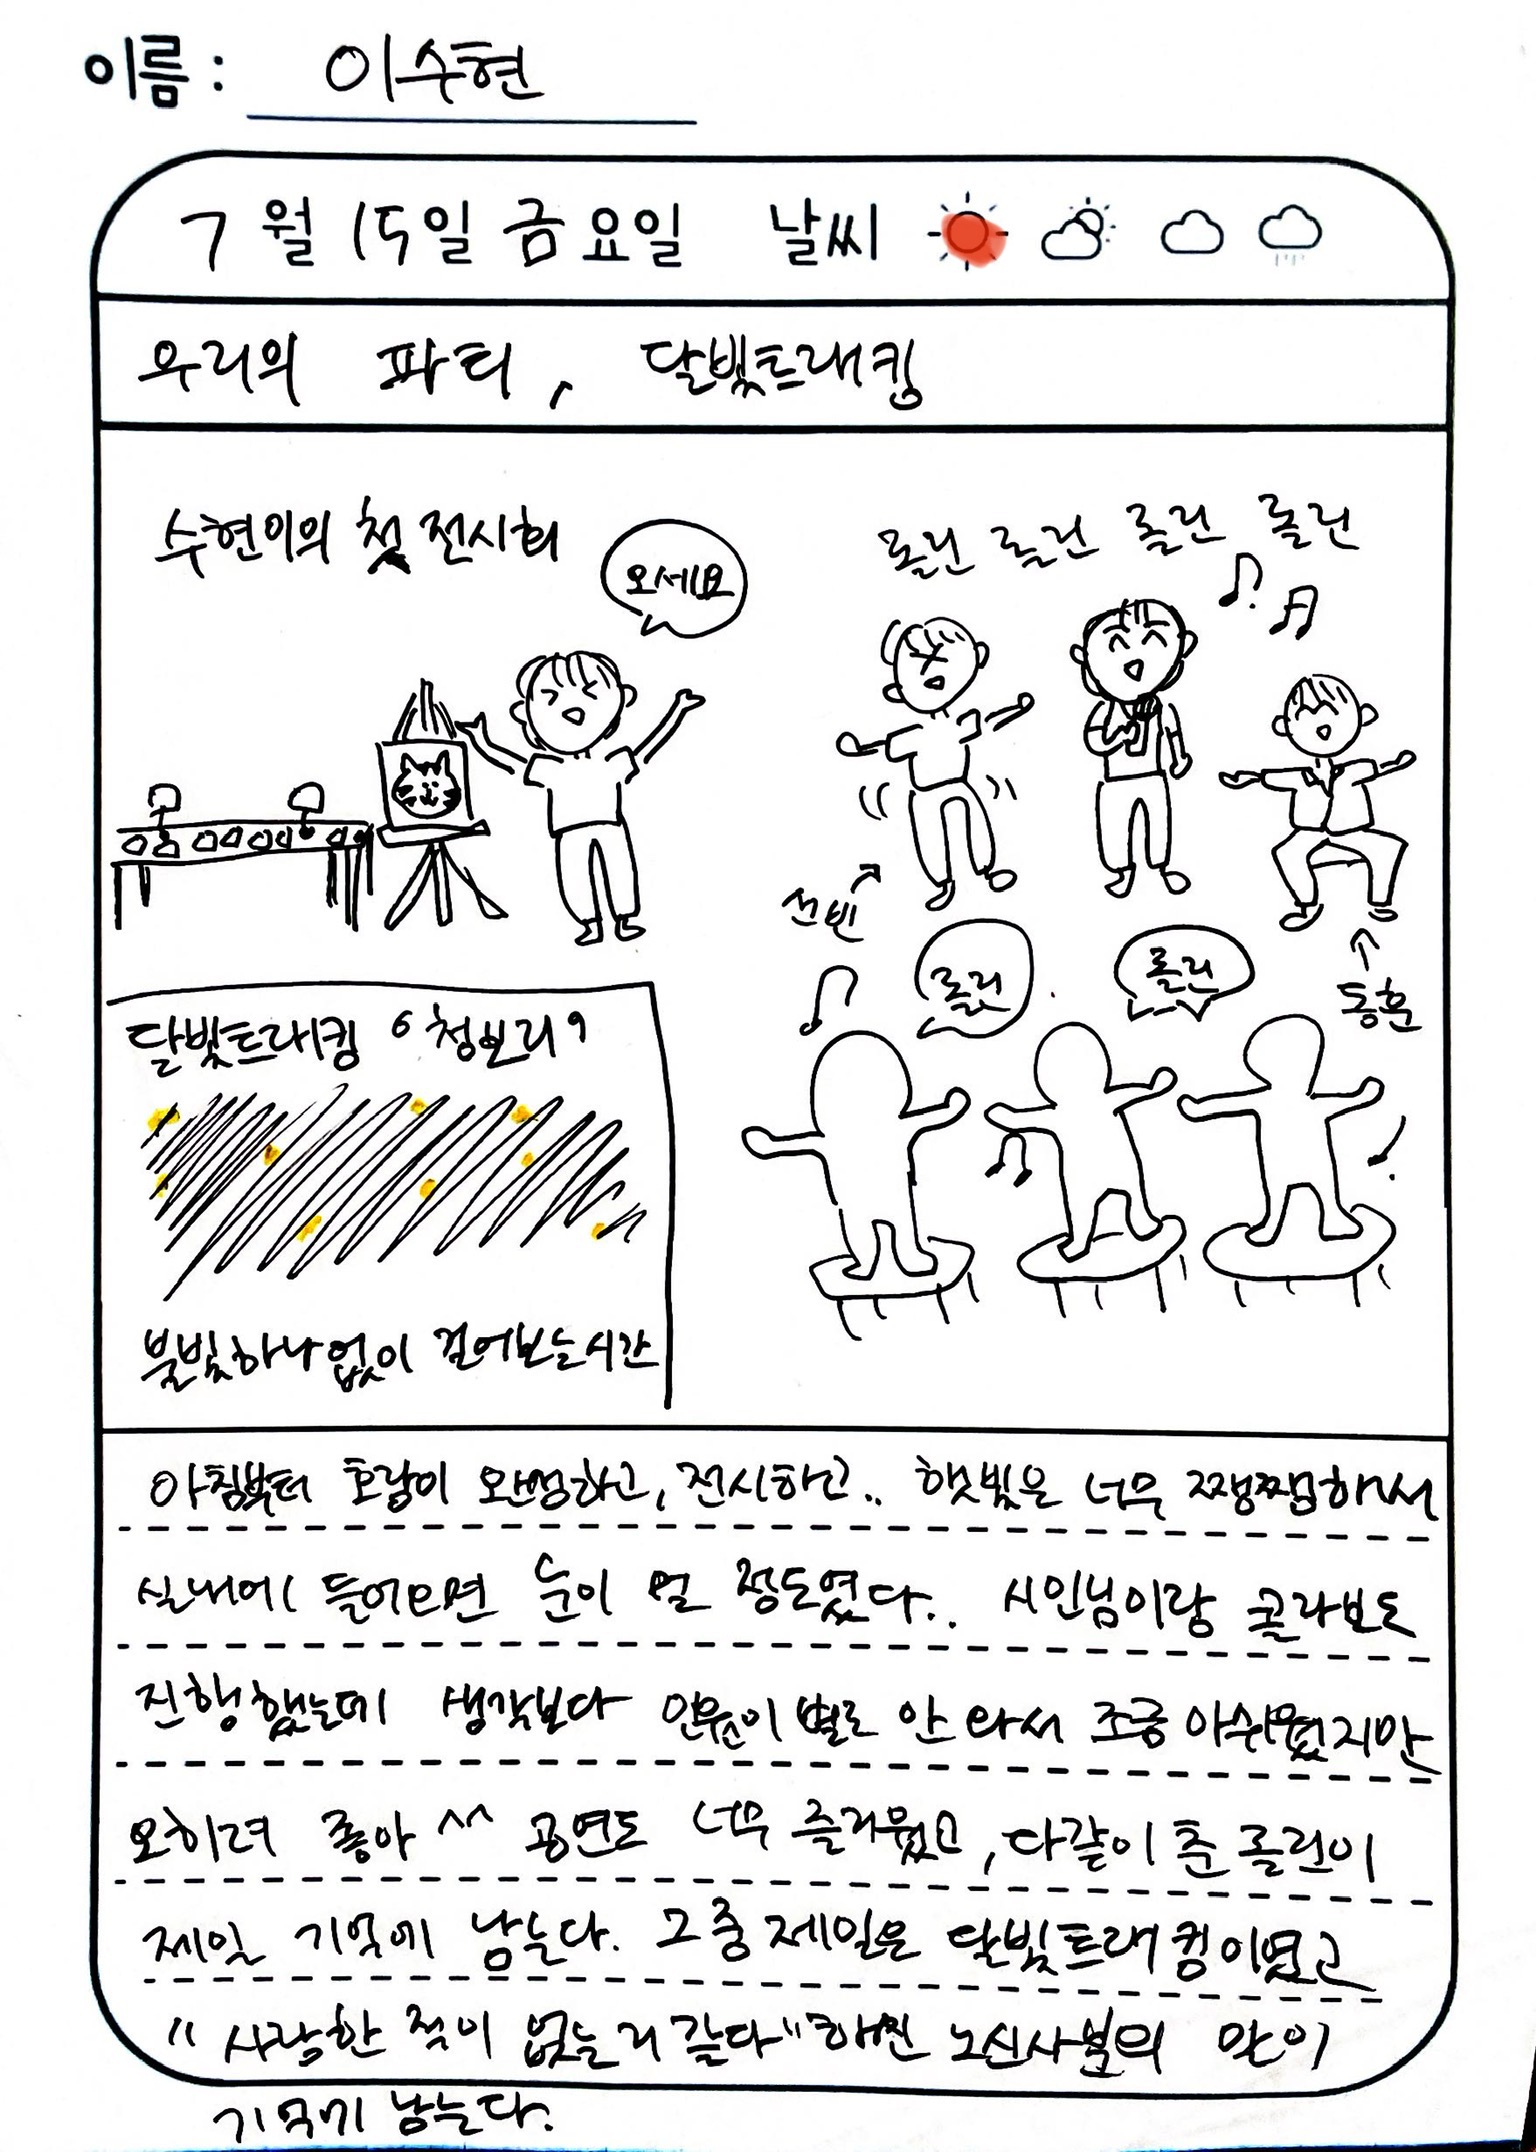 이름 : 이수현
7월 15일 금요일 날씨
우리의 파티, 달빛트래킹
수현이의 첫 전시회
오세요
롤린 롤린 롤린 롤린
선빈
동훈
롤린
롤린
달빛트래킹 '청보리'
불빛하나없이 걸어보는시간
아침부터 호랑이 완성하고, 전시하고.. 햇빛은 너무 쨍쨍하여서
실내에 들어오면 눈이 멀 정도였다.. 시인님이랑 콜라보도
진행했는데 생각보다 인원이 별로 안 와서 조금 아쉬웠지만
오히려 좋아 ^^ 공연도 너무 즐거웠고, 다같이 춘 롤린이
제일 기억에 남는다. 그 중 제일은 달빛트래킹이였고
"사랑한 적이 없는거 같다" 하신 노신사분의 말이
기억에 남는다.